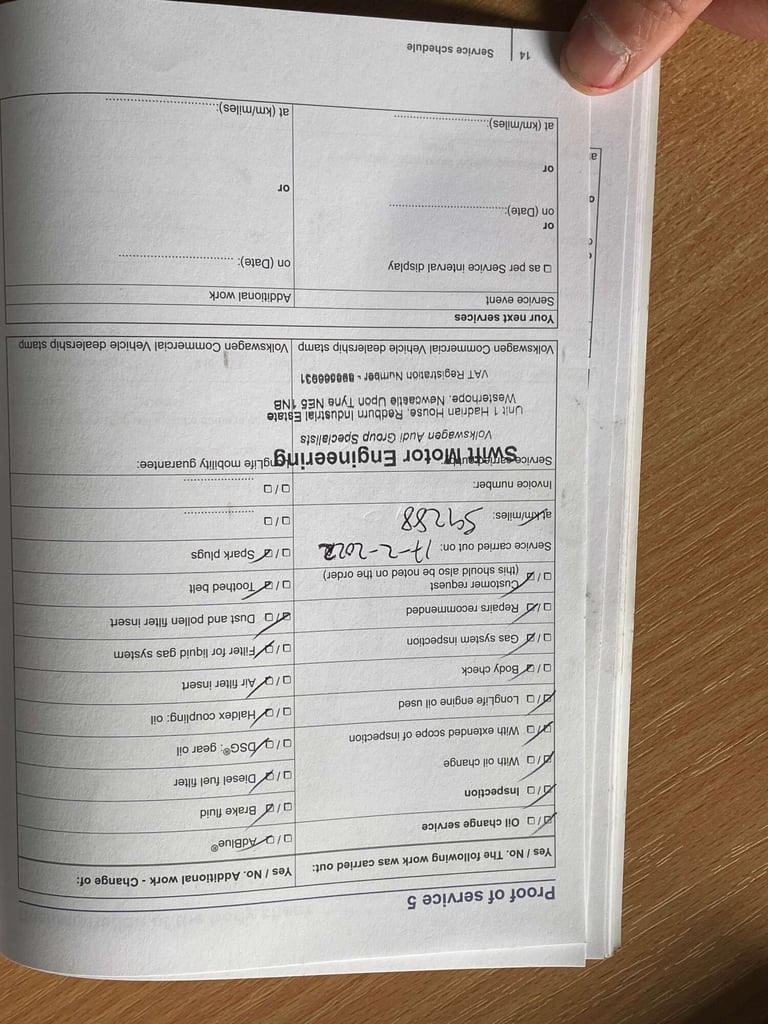 Proof of service 5
Yes / No. The following work was carried out:
☑ / ☐ Oil change service
☑ / ☐ Inspection
☑ / ☐ With oil change
☑ / ☐ With extended scope of inspection
☑ / ☐ LongLife engine oil used
☐ / ☑ Body check
☐ / ☑ Gas system inspection
☐ / ☑ Repairs recommended
☐ / ☑ Customer request
(this should also be noted on the order)
Service carried out on: 17-2-2022
at km/miles: 59288
Invoice number:
Service carried out by:
Swift Motor Engineering
Volkswagen Audi Group Specialists
Unit 1 Hadrian House, Redburn Industrial Estate
Westerhope, Newcastle Upon Tyne NE5 1NB
VAT Registration Number -
Volkswagen Commercial Vehicle dealership stamp
Yes / No. Additional work - Change of:
☐ / ☑ AdBlue®
☐ / ☑ Brake fluid
☐ / ☑ Diesel fuel filter
☐ / ☑ DSG®: gear oil
☐ / ☑ Haldex coupling: oil
☐ / ☑ Air filter insert
☐ / ☑ Filter for liquid gas system
☑ / ☐ Dust and pollen filter insert
☐ / ☑ Toothed belt
☐ / ☑ Spark plugs
☐ / ☐ ....................
☐ / ☐ ....................
LongLife mobility guarantee:
Volkswagen Commercial Vehicle dealership stamp
Your next services
Service event
☐ as per Service interval display
or
on (Date):..............................
or
at (km/miles):..............................
Additional work
on (Date): ..............................
or
at (km/miles):..............................
14
Service schedule